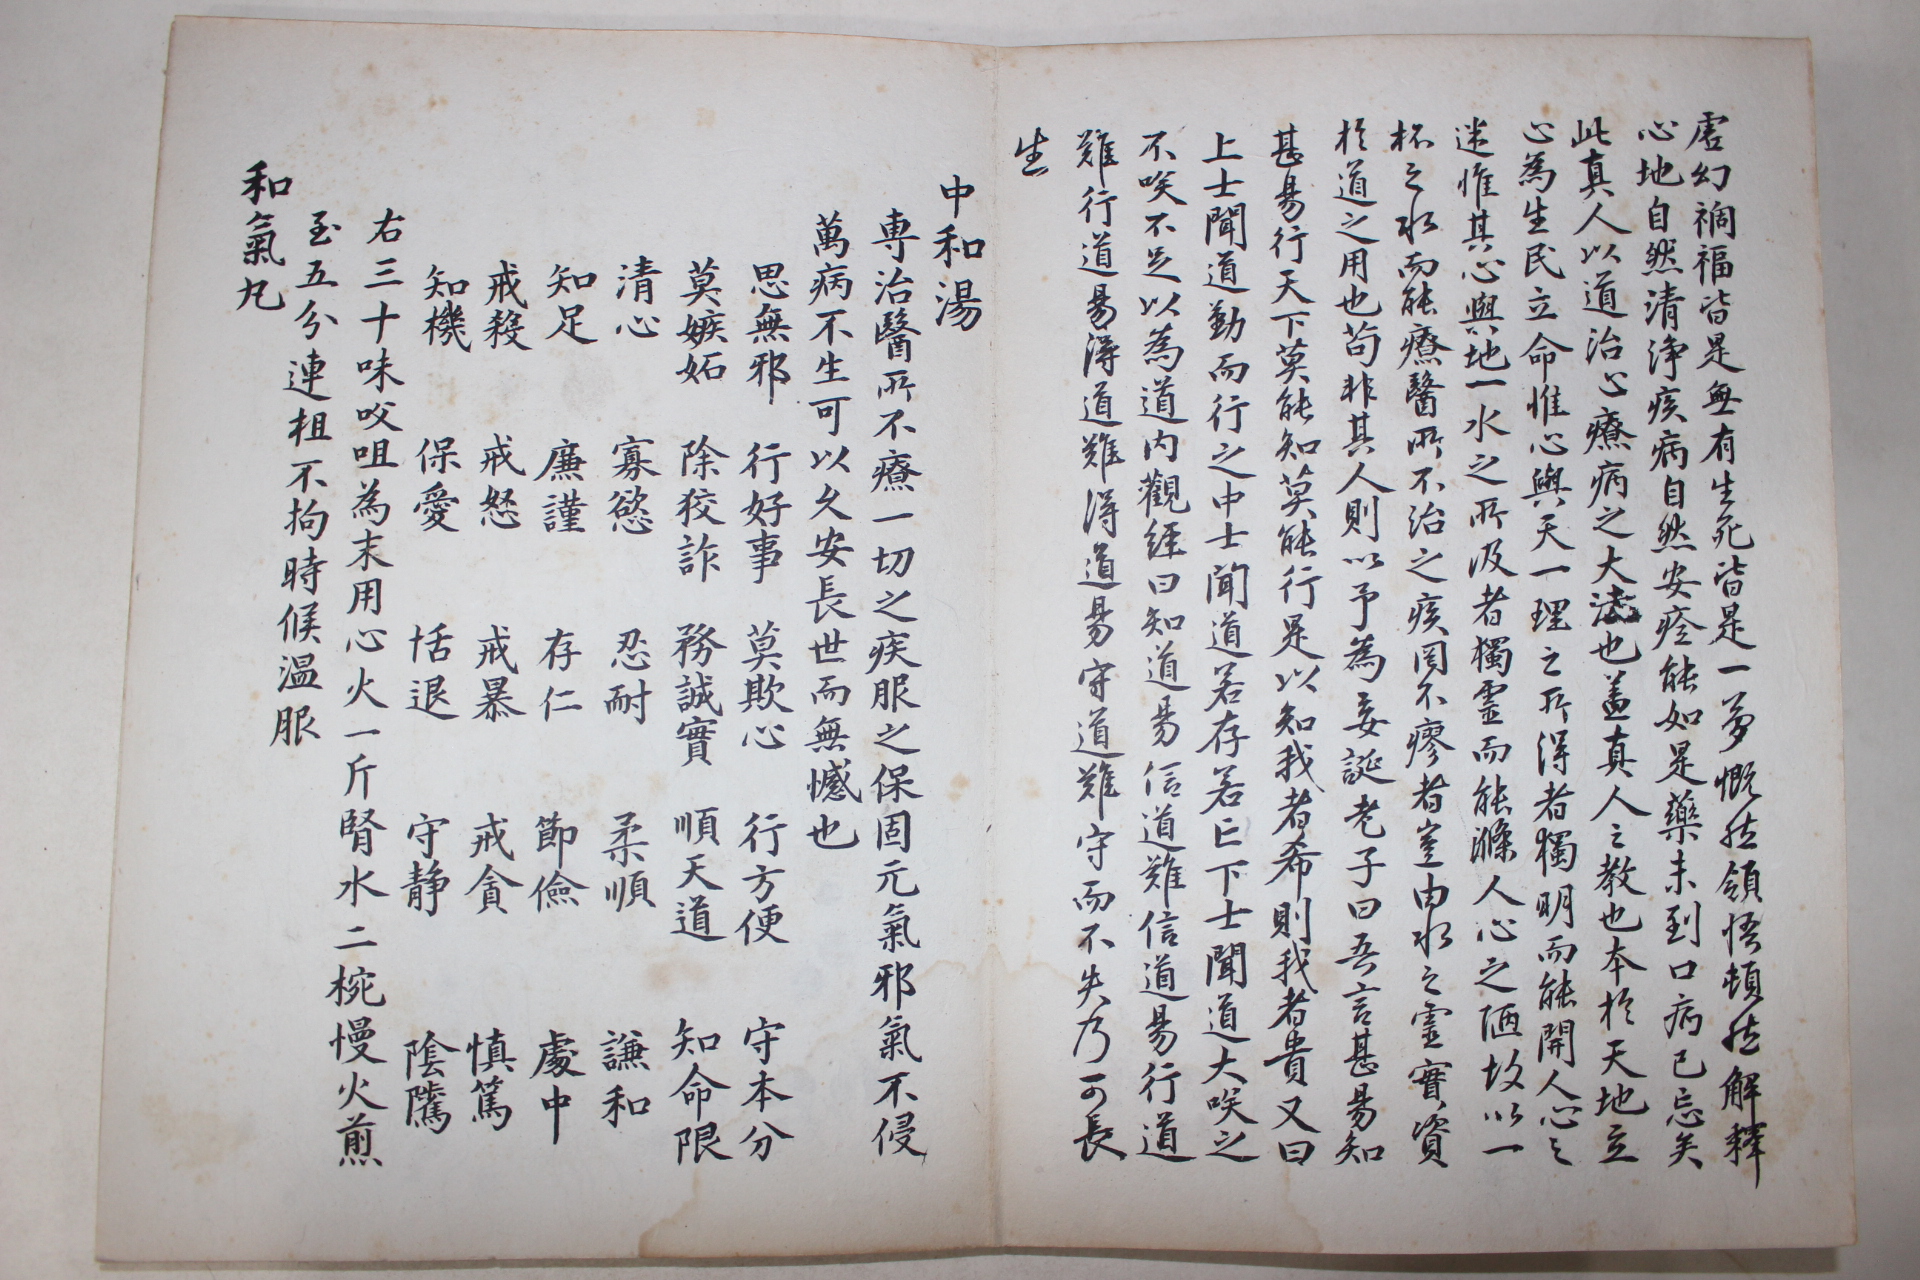 虗幻禍福皆是無有生死皆是一夢慨然領悟頓然解釋
心地自然清淨疾病自然安痊能如是藥未到口病已忘矣
此真人以道治心療病之大法也盖真人之教也本於天地立
心為生民立命惟心與天一理之所得者獨明而能開人心之
迷惟其心與地一水之所汲者獨靈而能滌人心之陋故以一
杯之水而能療醫所不治之疾罔不瘳者豈由水之靈實資
於道之用也苟非其人則以予為妄誕老子曰吾言甚易知
甚易行天下莫能知莫能行是以知我者希則我者貴又曰
上士聞道勤而行之中士聞道若存若亡下士聞道大咲之
不咲不足以為道內觀經曰知道易信道難信道易行道
難行道易得道難得道易守道難守而不失乃可長
生
中和湯
専治醫所不療一切之疾服之保固元氣邪氣不侵
萬病不生可以久安長世而無憾也
思無邪 行好事 莫欺心 行方便 守本分
莫嫉妬 除狡詐 務誠實 順天道 知命限
清心 寡慾 忍耐 柔順 謙和
知足 廉謹 存仁 節儉 處中
戒殺 戒怒 戒暴 戒貪 慎篤
知機 保愛 恬退 守静 陰騭
右三十味咬咀為末用心火一斤腎水二椀慢火煎
至五分連柤不拘時候温服
和氣丸